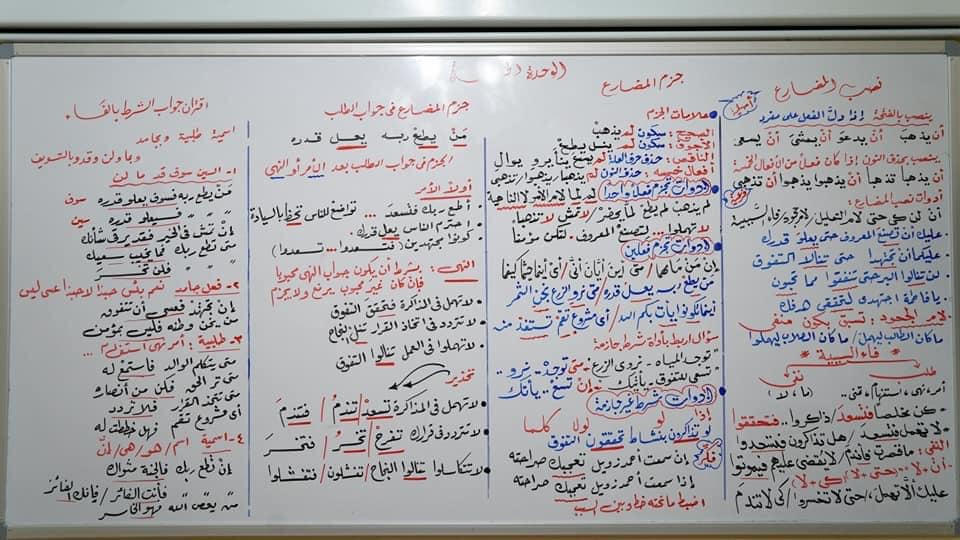 الوحدة
نصب المضارع
ينصب بالفتحة إذا دل الفعل على مفرد
أن يذهب أن يدعو أن يمشي أن يسعى
ينصب بحذف النون إذا كان فعلاً من الأفعال الخمسة
أن يذهبا تذهبا أن يذهبوا تذهبوا أن تذهبي
أدوات نصب المضارع:
أن لن كي حتى لام التعليل / لام الجحود / فاء السببية
عليك أن تصنع المعروف حتى يعلو قدرك
عليكما أن تجتهدا حتى تنالا التفوق
لن تنالوا البر حتى تنفقوا مما تحبون
يا فاطمة اجتهدي لتحققي هدفك
لام الجحود: تسبق بكون منفي
ما كان الطالب ليهمل / ما كان الطلاب ليهملوا
* فاء السببية *
طلب نفي
أمر، نهي، استفهام، تمني (ما، لا)
كن مخلصاً فتسعد / ذاكروا .. فتحققوا
لا تهمل فتسعد / هل تذكرون فتسعدوا
النفي: ما قصرت فأندم / لا يُقضى عليهم فيموتوا
عليك ألا تهمل / حتى لا تخسروا / كي لا تندم
جزم المضارع
علامات الجزم
الصحيح: سكون لم يذهبْ
الأجوف: سكون لم ينل يطع
الناقص: حذف حرف العلة لم
أفعال خمسة: حذف النون لم يذهبا
أدوات تجزم فعلاً واحداً لم لما لام الأمر لا الناهية
لم يذهب لم يطع لما يحضر / لا تمش لا تذهبا
لا تهملوا .. لتصنع المعروف. لتكن مؤمناً
أدوات تجزم فعلين
إن من ما مهما / متى أين أيان أنى / أي أينما حيثما كيفما
من يطع ربه يعل قدره / متى نرو الزرع نجن الثمر
أينما تكونوا يأت بكم الله / أي مشروع تقم تستفد منه
سؤال اربط بأداة شرط جازمة:
توجد المياه - نروي الزرع - متى توجد - نرو
تسعى للتفوق - يأتيك - إن تسع - يأتك
أدوات شرط غير جازمة
إذا لو لولا كلما
لو تذاكرون بنشاط تحققون التفوق
إن سمعت أحمد زويل تعجبك صراحته
إذا سمعت أحمد زويل تعجبك صراحته
اضبط ما تحته خط وبين السبب
جزم المضارع في جواب الطلب
مَنْ يطع ربه يعل قدره
الجزم في جواب الطلب بعد الأمر أو النهي
أولاً الأمر
أطع ربك تسعد ... تواضع للناس تحظ بالسيادة
احترم الناس يعل قدرك
كونوا مجتهدين (تسعدوا ... تسعدوا)
النهي: بشرط أن يكون جواب النهي محبوباً
فإن كان غير محبوب يرفع ولا يجزم
لا تهمل في المذاكرة تحقق التفوق
لا تتردد في اتخاذ القرار تنل النجاح
لا تهملوا في العمل تنالوا التفوق
تحذير
لا تهمل في المذاكرة تسعد / تندم / فتندم
لا تتردد في قرارك تفرح / تخسر / فتخسر
لا تتكاسلوا تنالوا النجاح / تفشلون / فتفشلوا
اقتران جواب الشرط بالفاء
اسمية طلبية وبجامد
وبما ولن وقد وبالتسويف
١- السين سوف قد ما لن
من يطع ربه فسوف يعلو قدره سوف
" " " فسيعلو قدره سين
إن تمش في الخير فقد يرق شأنك
متى تطع ربك فما يخيب سعيك
" " " فلن تخسر
٢- فعل جامد نعم بئس حبذا لا حبذا عسى ليس
إن تجتهد فعسى أن تتفوق
من يخن وطنه فليس بمؤمن
٣- طلبية: أمر نهي استفهام ...
متى يتكلم الوالد فاستمع له
متى تر الحق فكن من أنصاره
متى تتخذ القرار فلا تردد
أي مشروع تقم فهل خططت له
٤- اسمية اسم / هو / هي / إنّ
إن تطع ربك فالجنة مثواك
فأنت الفائز / فإنك الفائز
من يعص الله فهو الخاسر